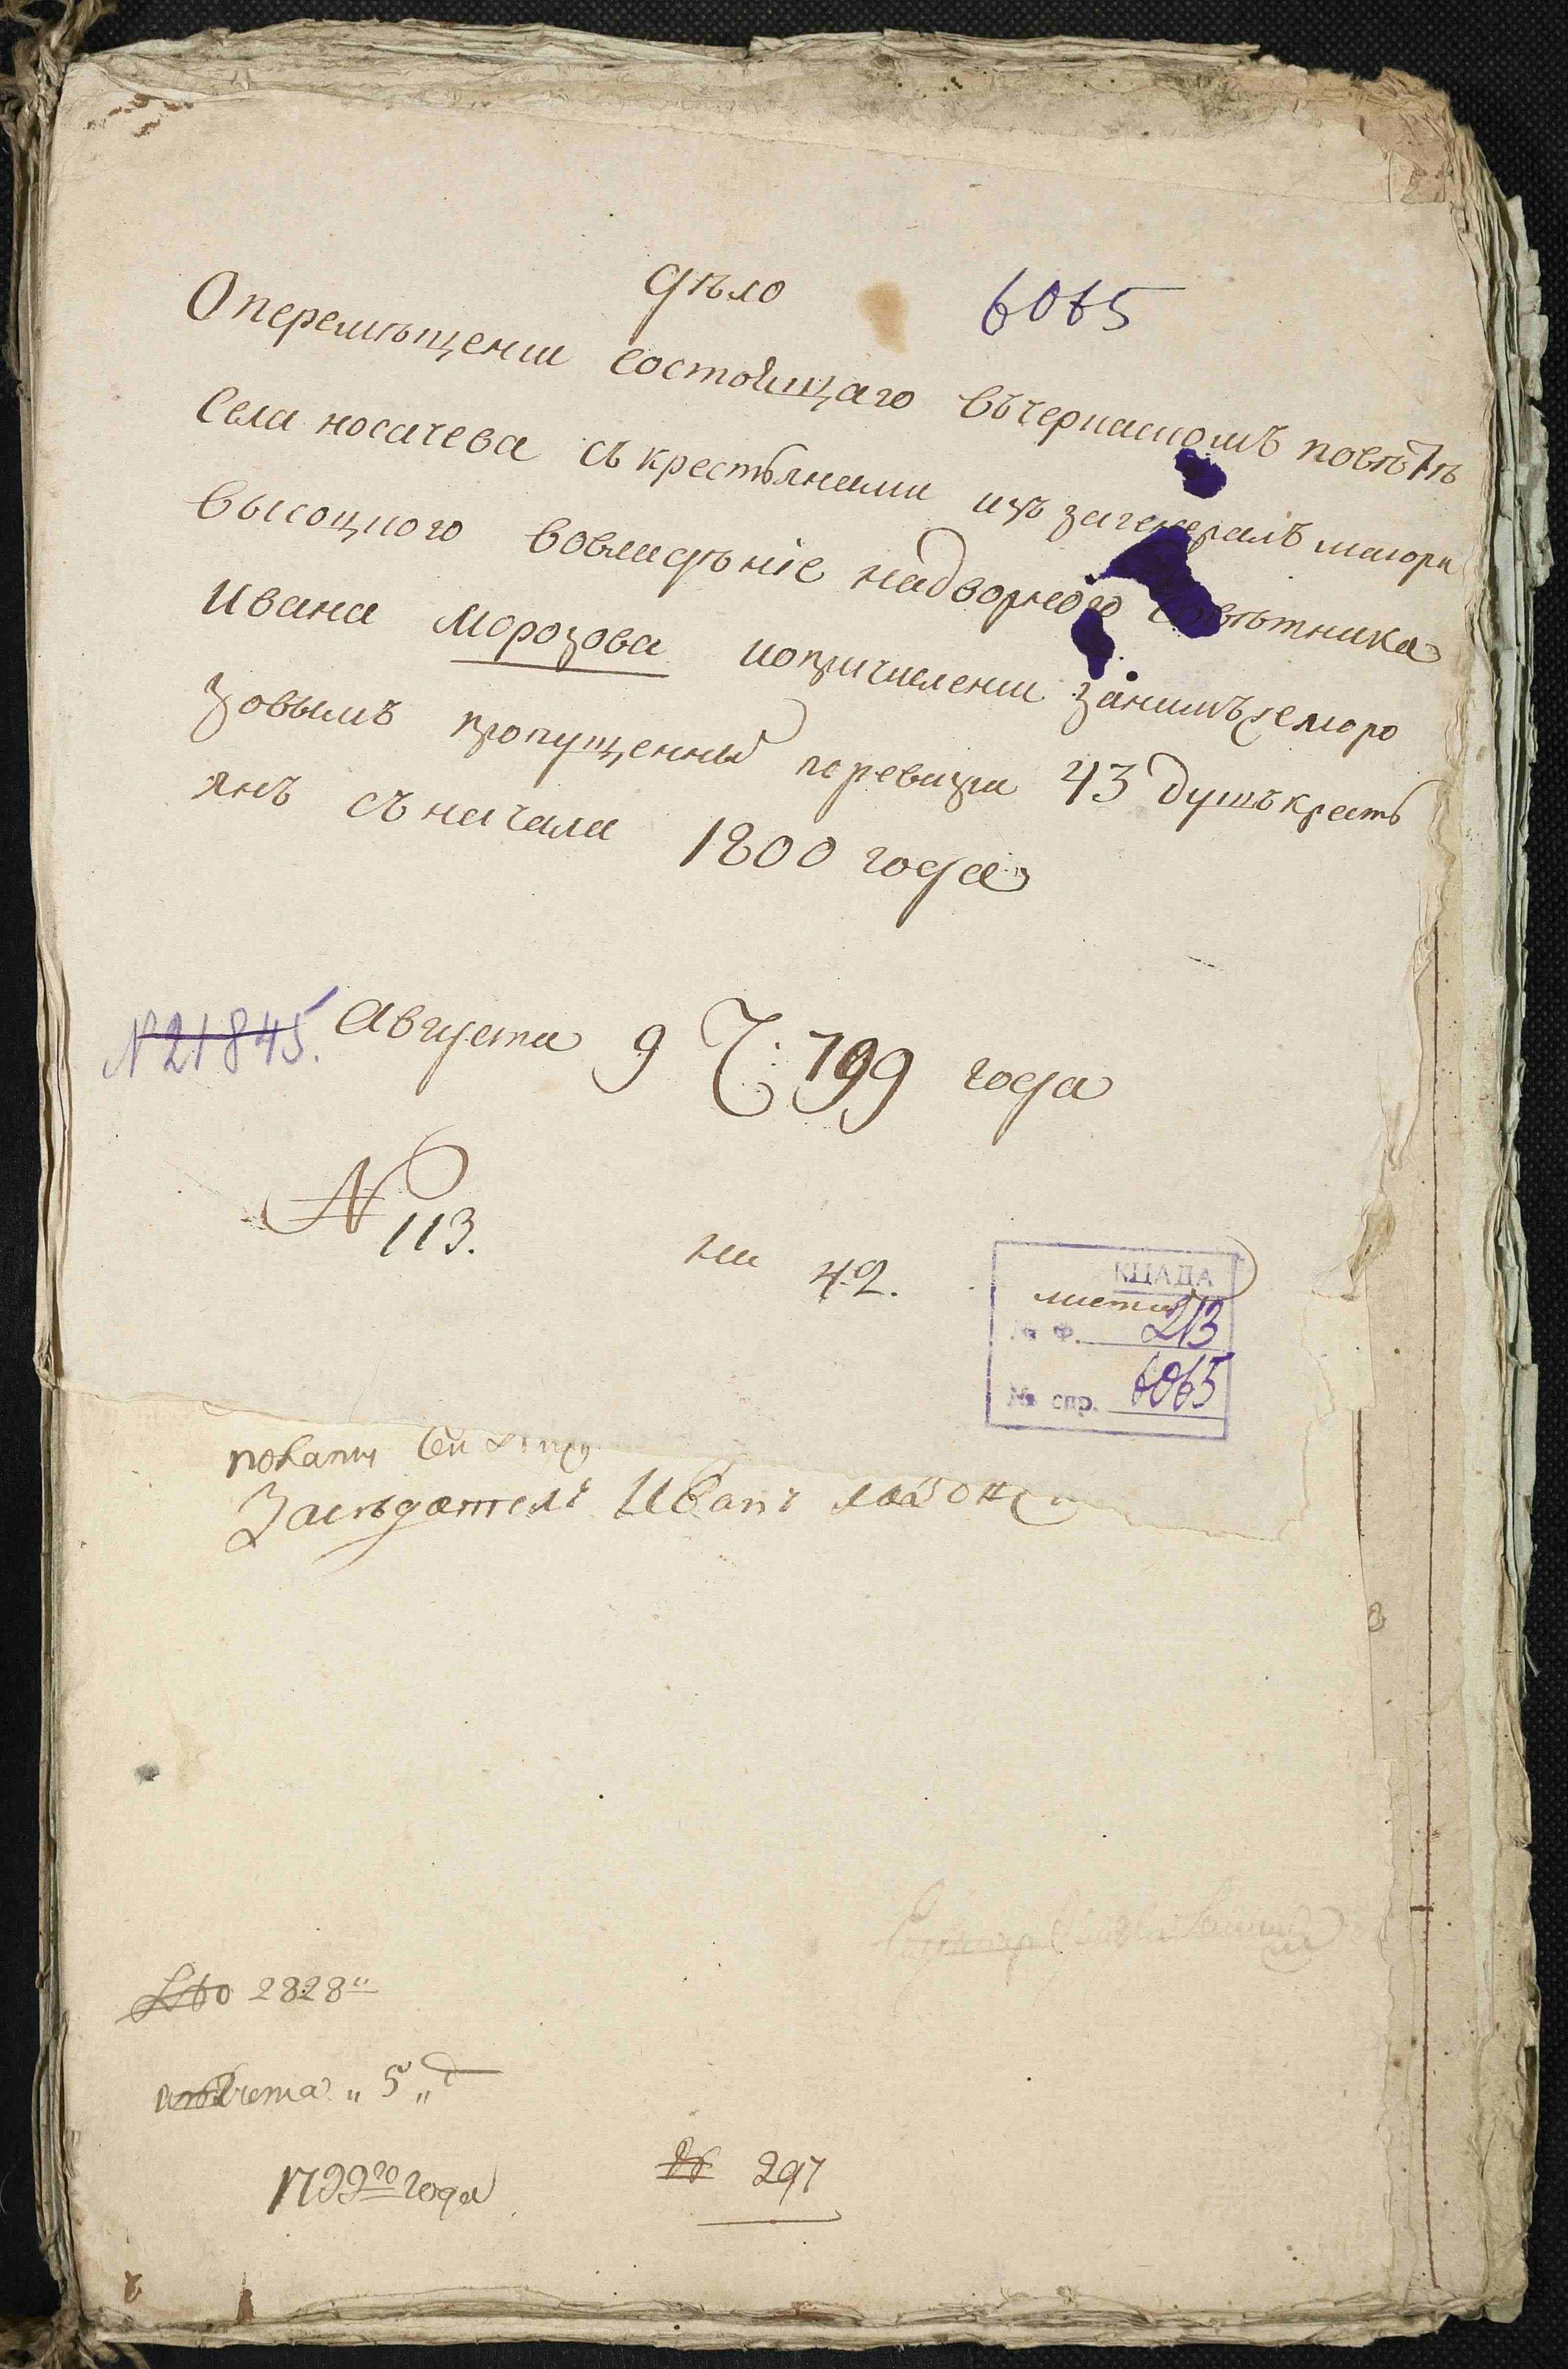 Дѣло
6065
О перемѣщении состоящаго въ черкаскомъ повѣтѣ
Села носачева съ крестьянами изъ за генералъ маiора
высоцкого вовладѣніе надворного совѣтника
Ивана Морозова и опричислении заимъ же моро
зовымъ пропущенных поревизіи 43 душъ кресть
янъ съ начала 1800 года
№ 21845.
Августа 9 Ч: 799 года
№ 113.
на 42.
листа
КЦАДА
№ Ф. 213
№ спр. 6065
Засѣдатель Иванъ
2828
5
1799го года
№ 297